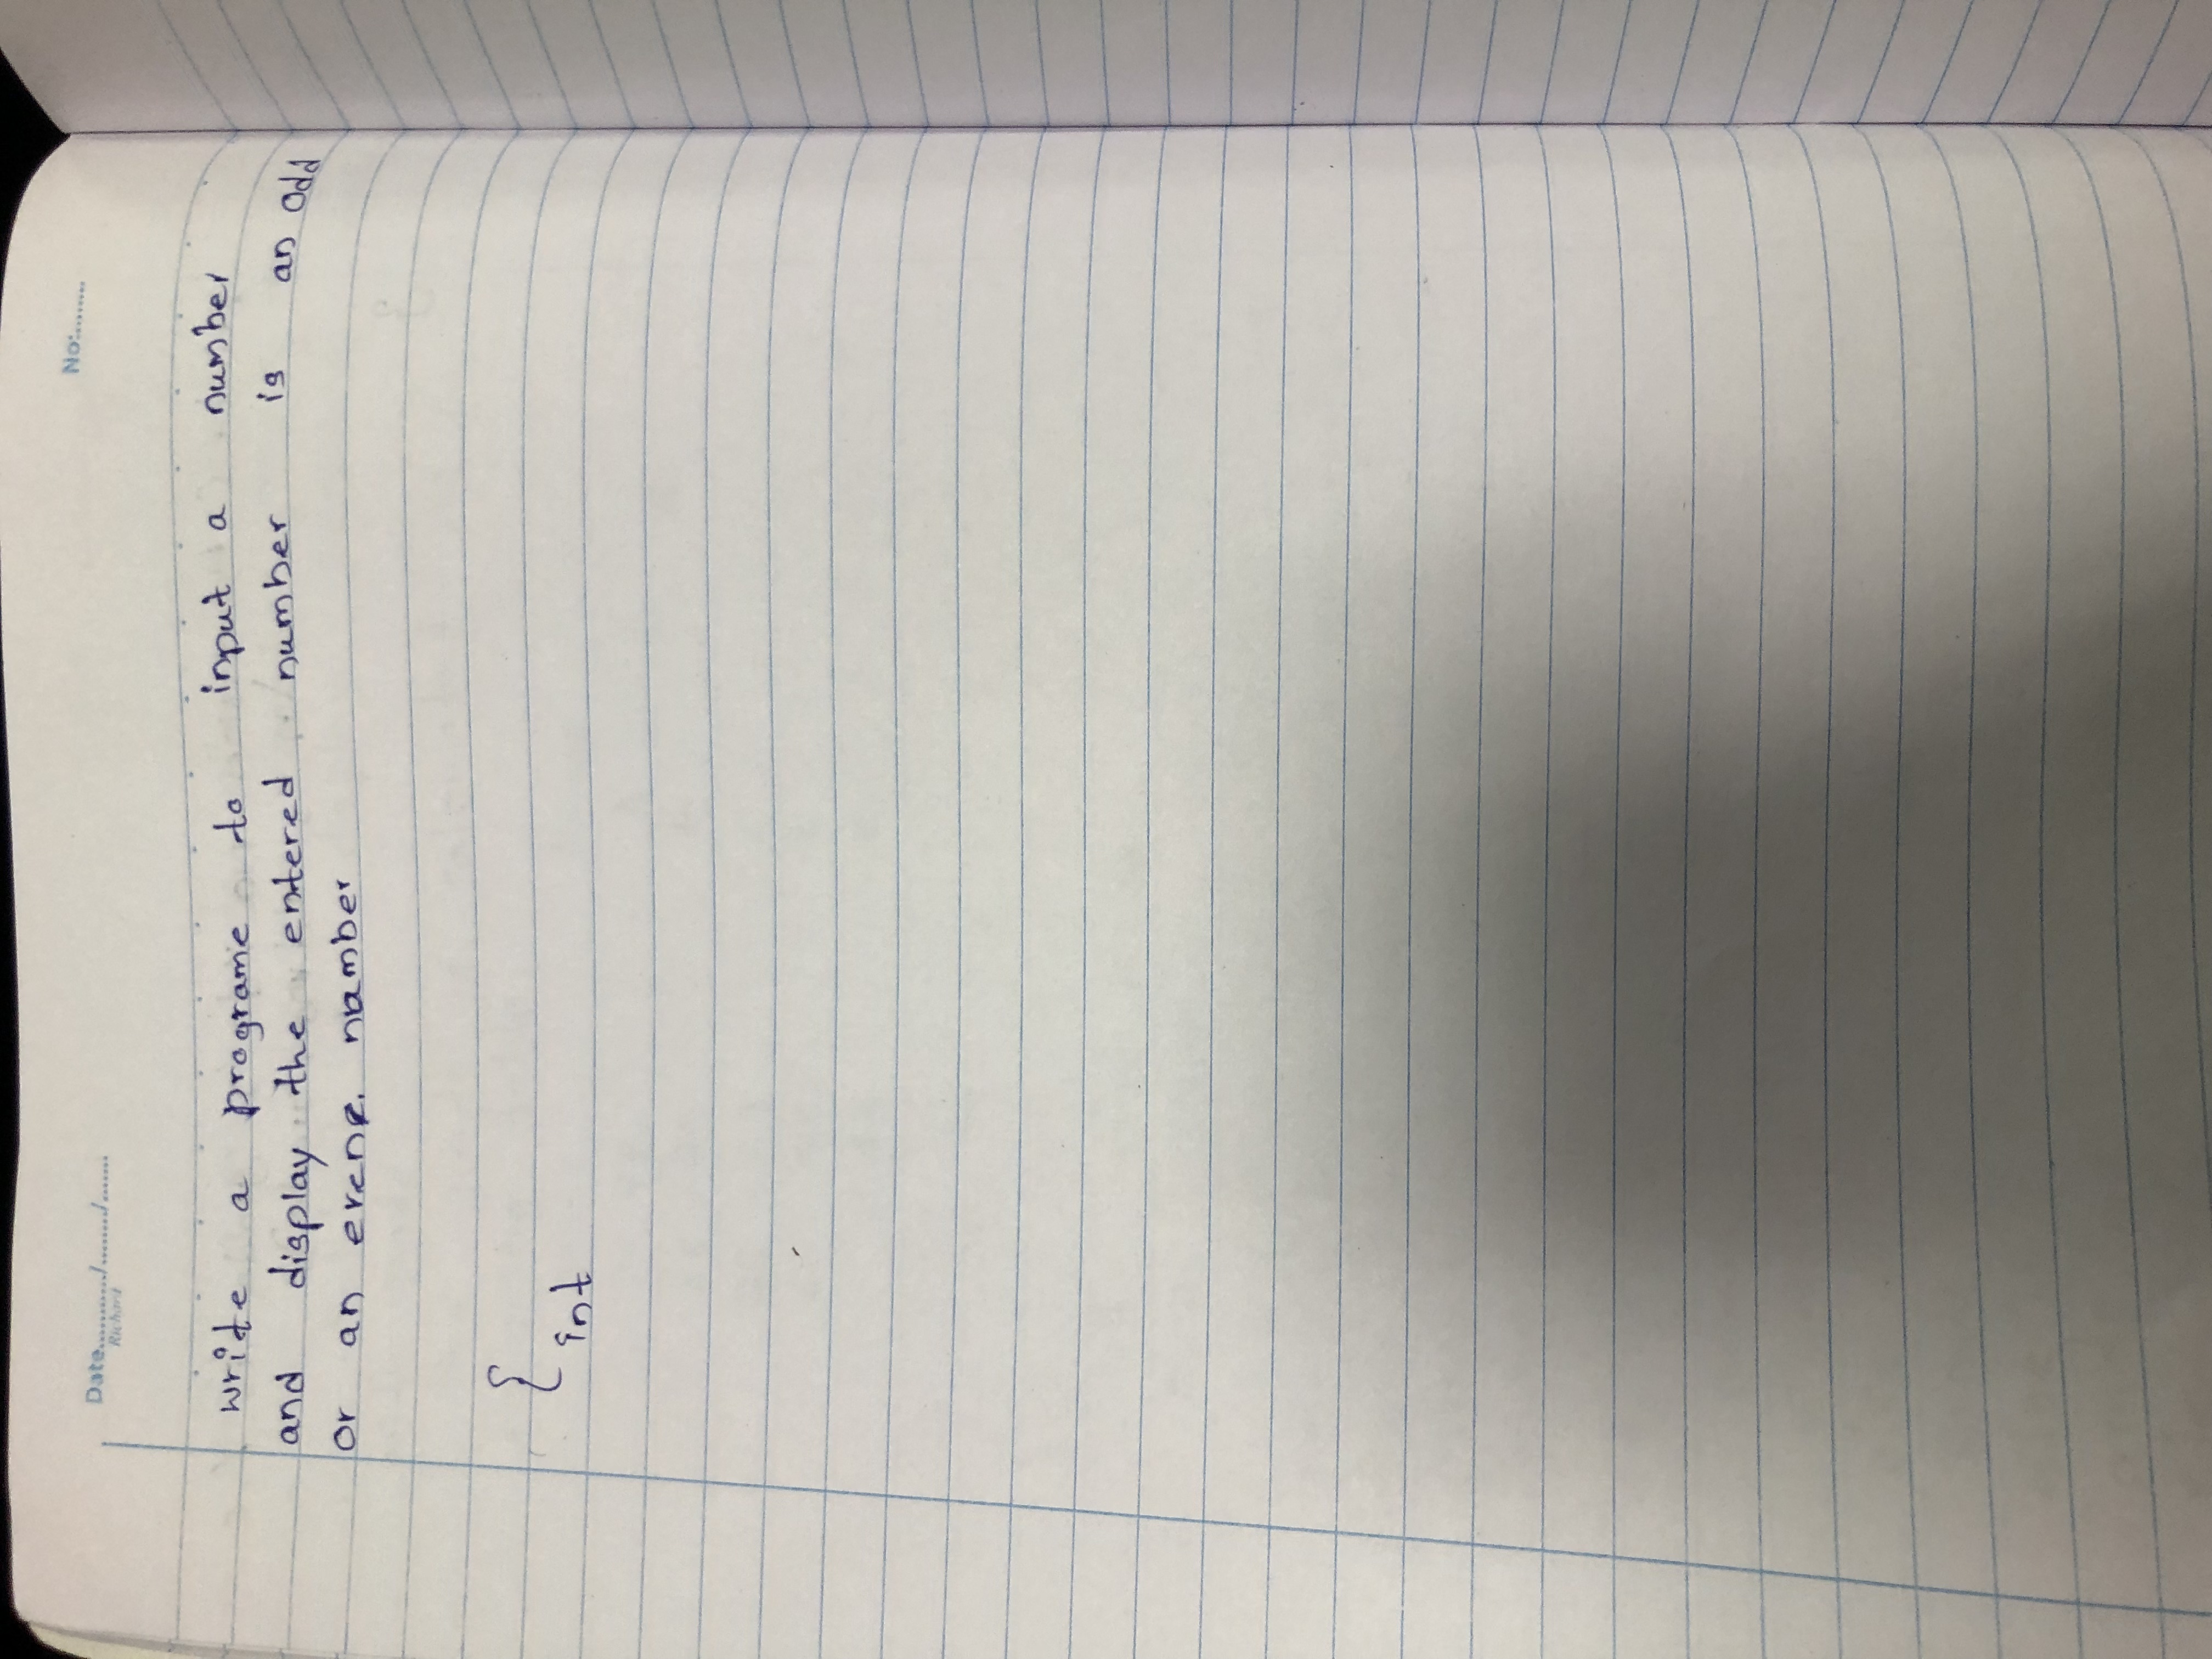 Date.........../......../.......
Richard
No:........
write a programe to input a number
and display the entered number is an odd
or an even number
{
int